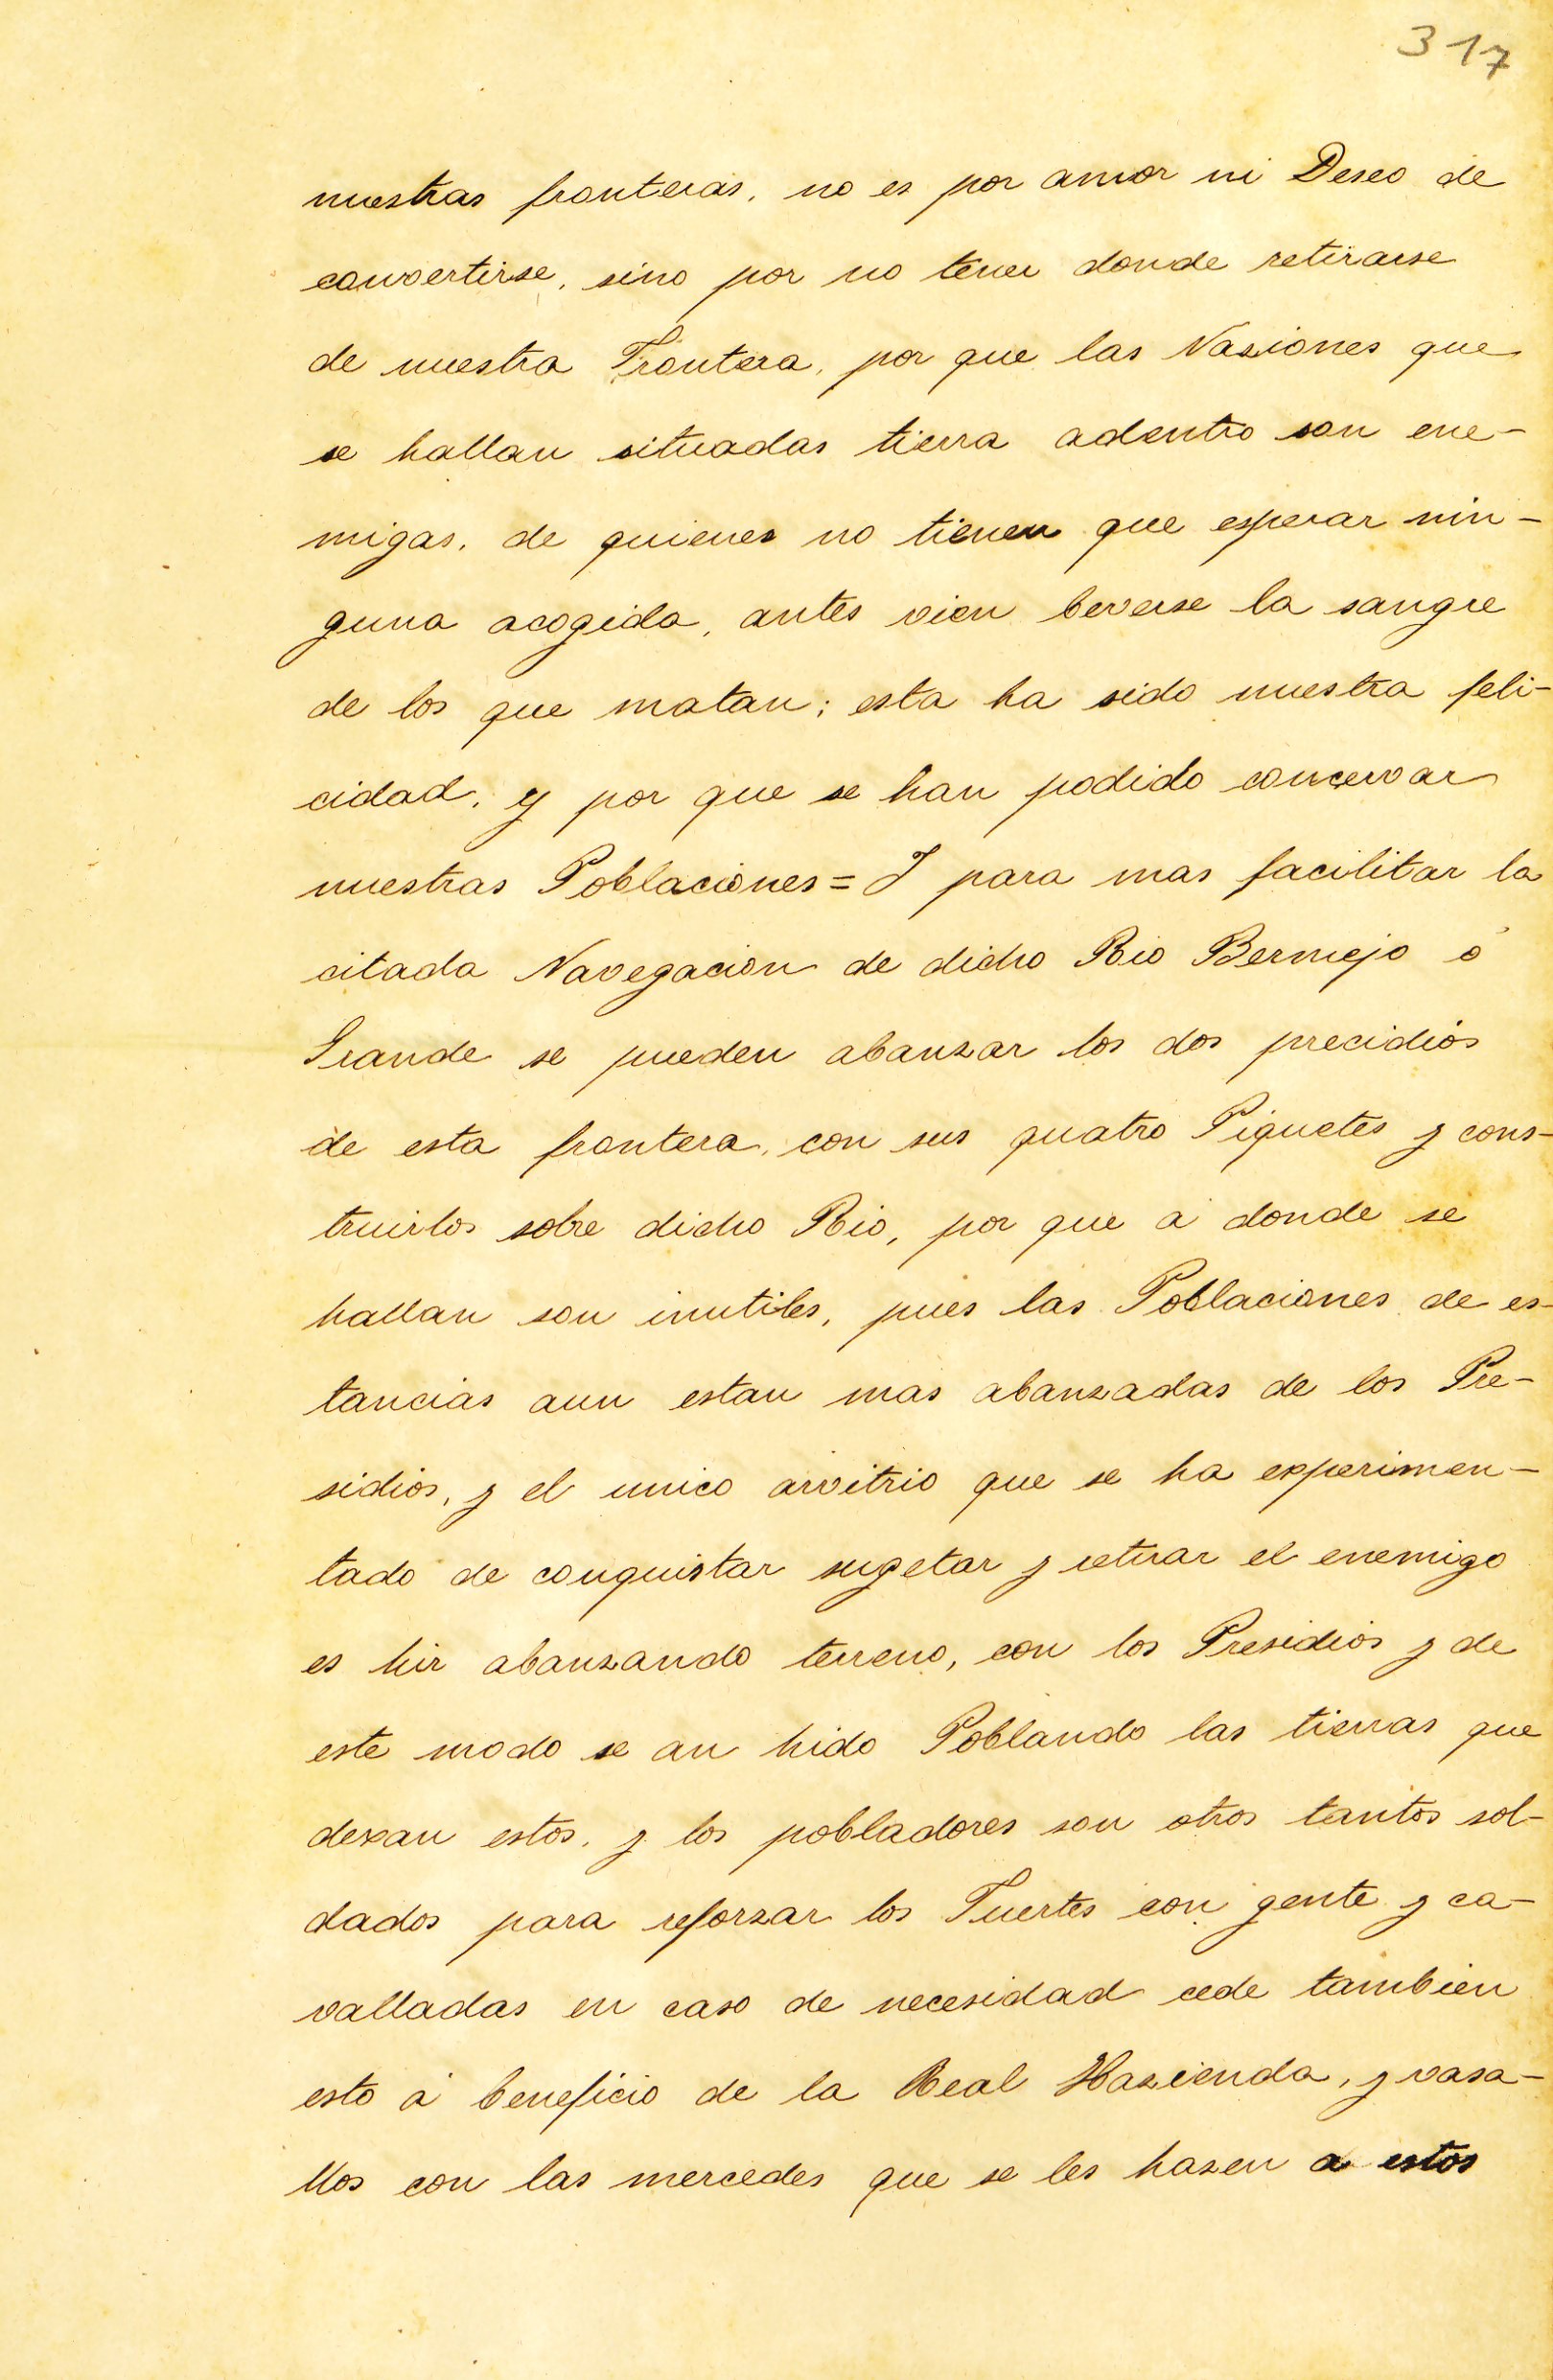 317
nuestras fronteras, no es por amor ni Deseo de
convertirse, sino por no tener donde retirarse
de nuestra Frontera, por que las Nasiones que
se hallan situadas tierra adentro son ene-
migas, de quienes no tienen que esperar nin-
guna acogida, antes vien beverse la sangre
de los que matan; esta ha sido nuestra feli-
cidad, y por que se han podido concervar
nuestras Poblaciones = I para mas facilitar la
citada Navegacion de dicho Rio Bermejo ó
Grande se pueden abanzar los dos precidios
de esta frontera, con sus quatro Piquetes y cons-
truirlos sobre dicho Rio, por que á donde se
hallan son inutiles, pues las Poblaciones de es-
tancias aun estan mas abanzadas de los Pre-
sidios, y el unico arvitrio que se ha experimen-
tado de conquistar sugetar y retirar el enemigo
es hir abanzando terreno, con los Presidios y de
este modo se an hido Poblando las tierras que
dexan estos, y los pobladores son otros tantos sol-
dados para reforzar los Fuertes con gente y ca-
valladas en caso de necesidad cede tambien
esto á beneficio de la Real Hazienda, y vasa-
llos con las mercedes que se les hazen a estos